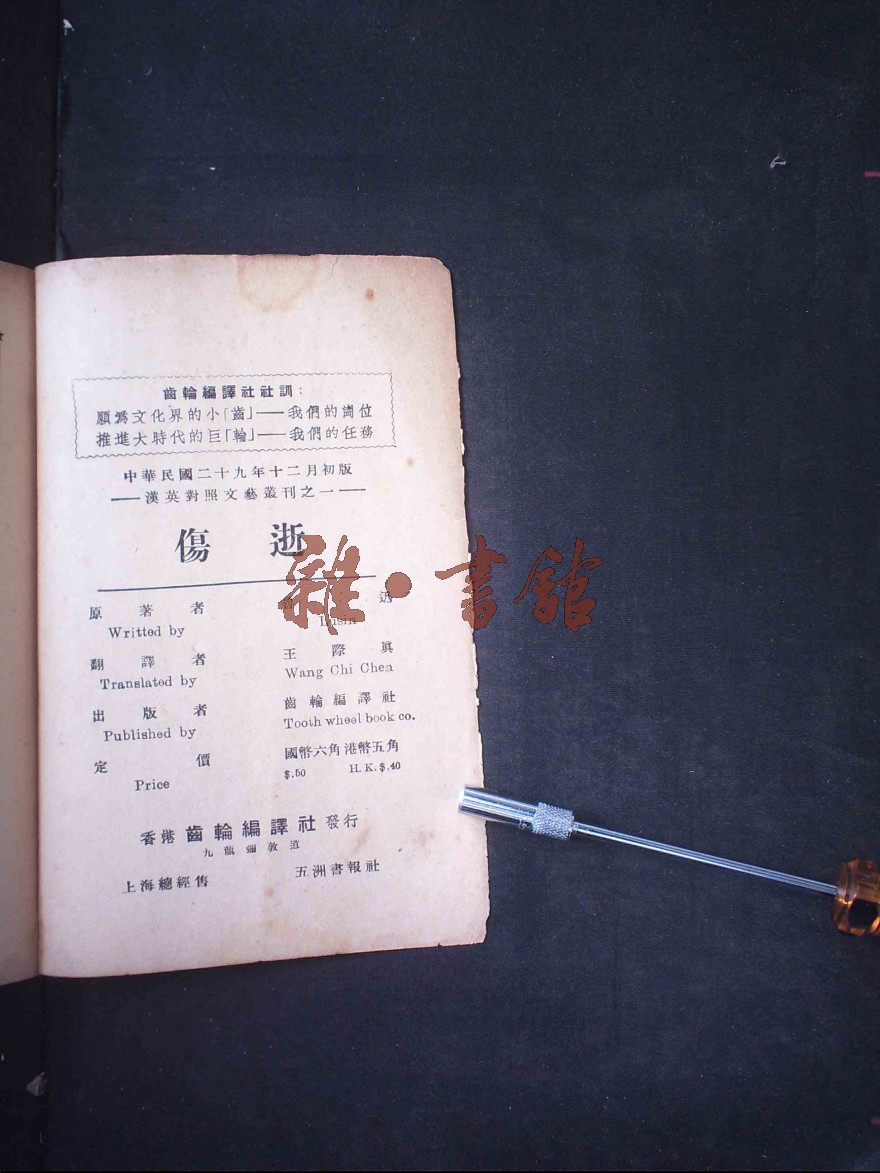 齒輪編譯社社訓:
願爲文化界的小「齒」——我們的崗位
推進大時代的巨「輪」——我們的任務
中華民國二十九年十二月初版
——漢英對照文藝叢刊之一——
傷 逝
雜·書館
原著者 魯迅
Writted by Lusin
翻譯者 王際眞
Translated by Wang Chi Chen
出版者 齒輪編譯社
Published by Tooth wheel book co.
定價 國幣六角 港幣五角
Price $.50 H.K.$.40
香港 齒輪編譯社 發行
九龍彌敦道
上海總經售 五洲書報社